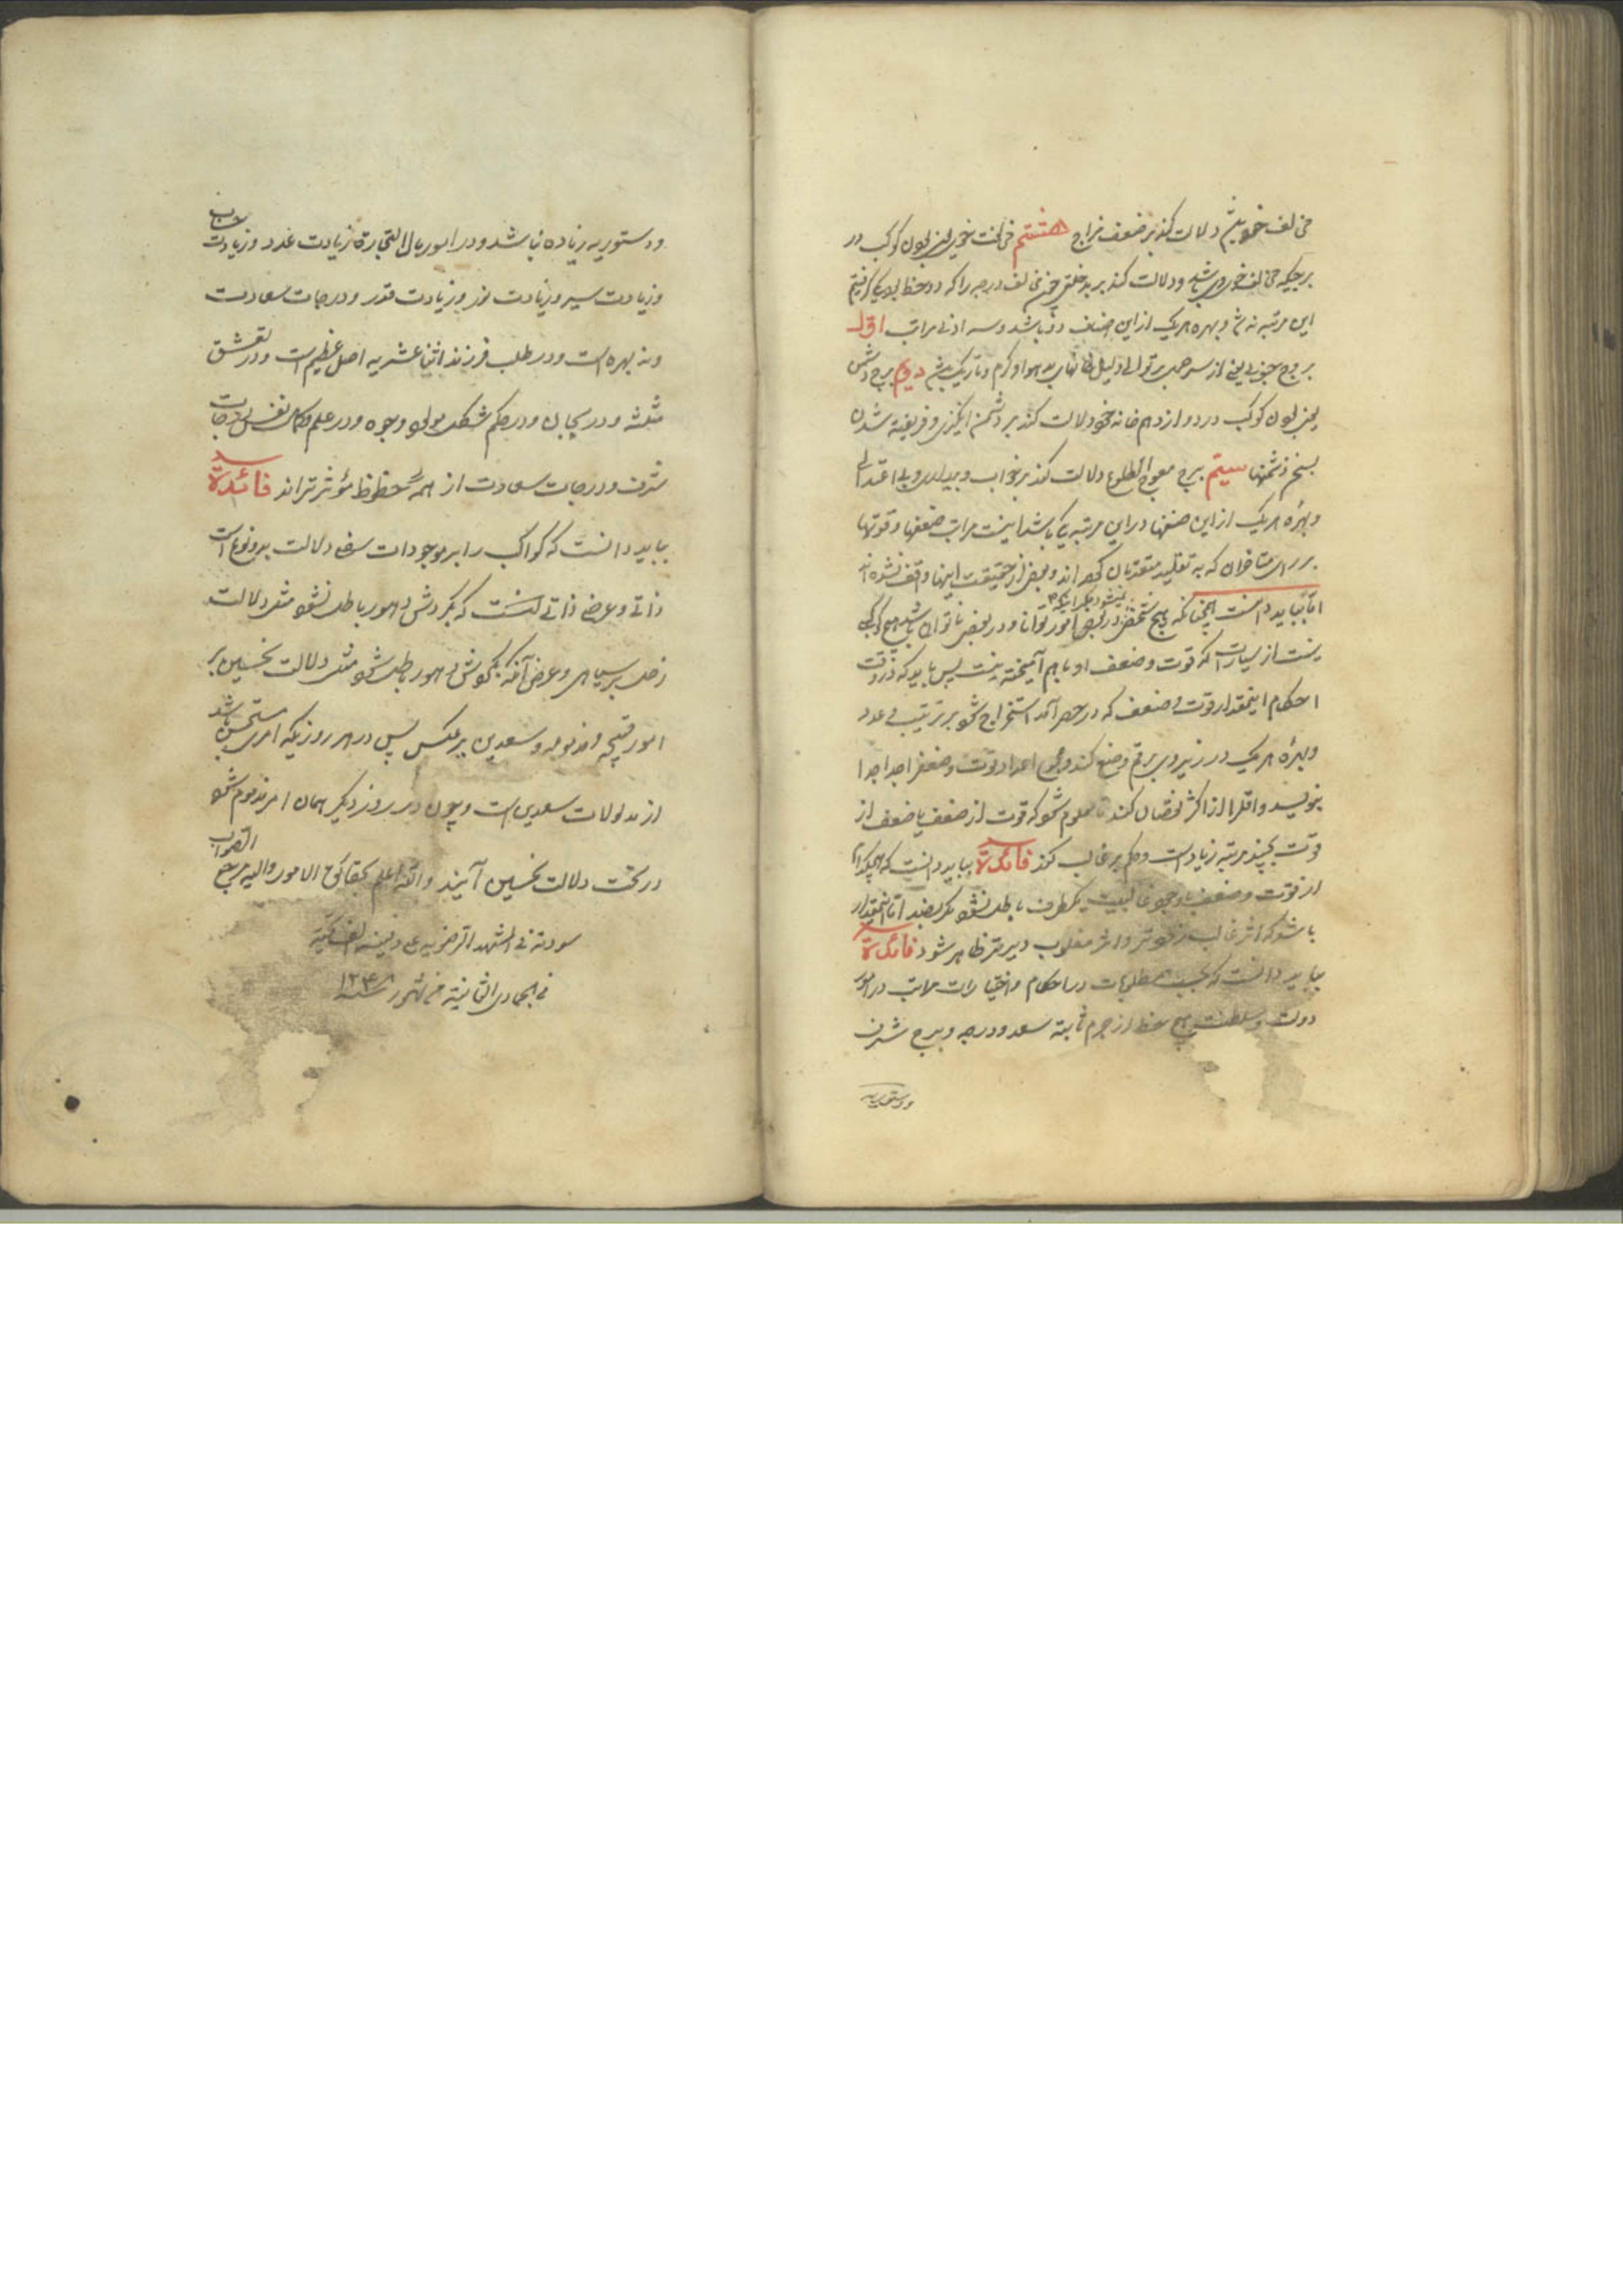 مخالف خود بیشم دلالت کند بر ضعف مزاج هشتم مخالفت خوی یعنی بودن کوکب در
برجیکه مخالف خوی وی باشد ودلالت کند بر بد خلقی چون مخالف درجه را که دو حظ بود یکی گرفتیم
این مرتبه نه شد و بهره هر یک از این اصناف دو باشد وسه ادنی مراتب اول
بروج جنوبی یعنی از سر میزان بر توالی دلیل بد هوا و گرم و تاریک دویم برج دشمن
یعنی بودن کوکب در دوازدهم خانه خود دلالت کند بر دشمن انگیزی و فریفته شدن
بسخن دشمنها سیم برج معوج الطلوع دلالت کند بر خواب و بیداری و بی اعتدالی
وبهرهٔ هر یک از این صنفها در این مرتبه یک باشد اینست مراتب ضعفها وقوتها
بر رای متاخران که به تقلید متقدمان کرده اند وبعضی از حقیقت اینها واقف نشده اند
اما بباید دانست همچنانکه هیچ شخصی در بعضی امور توانا و در بعضی ناتوان باشد هیچ کوکبی
نیست از سیارات که قوت وضعف او با هم آمیخته نیست پس باید که در وقت
احکام اینمقدار قوت وضعف که در حصر آمد استخراج شود بر ترتیب وعدد
وبهرهٔ هر یک در زیر وی برقم وضع کند و مجموع اعداد قوت وضعف را جدا جدا
بنویسد واقل را از اکثر نقصان کند تا معلوم شود که قوت از ضعف یا ضعف از
قوت بچند مرتبه زیاد است وحکم بر غالب کند فائدة بباید دانست که هیچکدام
از قوت وضعف با وجود غالبیت یکطرف باطل نشود اما اینمقدار
باشد که اثر غالب زودتر واثر مغلوب دیرتر ظاهر شود فائدة
بباید دانست که بحسب مطلوبات در احکام واختیارات مراتب در امور
دولت وسلطنت هیچ حظ از جرم ثابته سعد ودرجه وبرج شرف
ودستوریه
ودستوریه زیاده نباشد ودر امور مال التجارة زیادت عدد وزیادت حساب
وزیادت سیر وزیادت نور وزیادت قدر ودرجات سعادت
ونه بهره است ودر طلب فرزند اثنا عشریه اصل عظیم است ودر تعشق
مثلثه ودر حکم مشکل وجوه ودر علم درجات
شرف ودرجات سعادت از همهٔ حظوظ مؤثرتراند فائدة
بباید دانست که کواکب را بر موجودات سفلی دلالت بدو نوع است
ذاتی وعرضی ذاتی آنست که بگردش دهور باطل نشود مثل دلالت
زحل بر سیاهی وعرضی آنکه بگردش دهور باطل شود مثل دلالت نحسین بر
امور قبیحه ومذمومه وسعدین بر عکس پس در هر روزیکه امری مستحسن باشد
از مدلولات سعدین است وچون در روز دیگر همان امر مذموم شود
در تحت دلالت نحسین آیند والله اعلم بحقائق الامور والیه مرجع الصواب
سودته فی المشهد الرضویه علی دفینه الف تحیة
فی الجمادی الثانیة من شهور سنه ۱۲۳۸